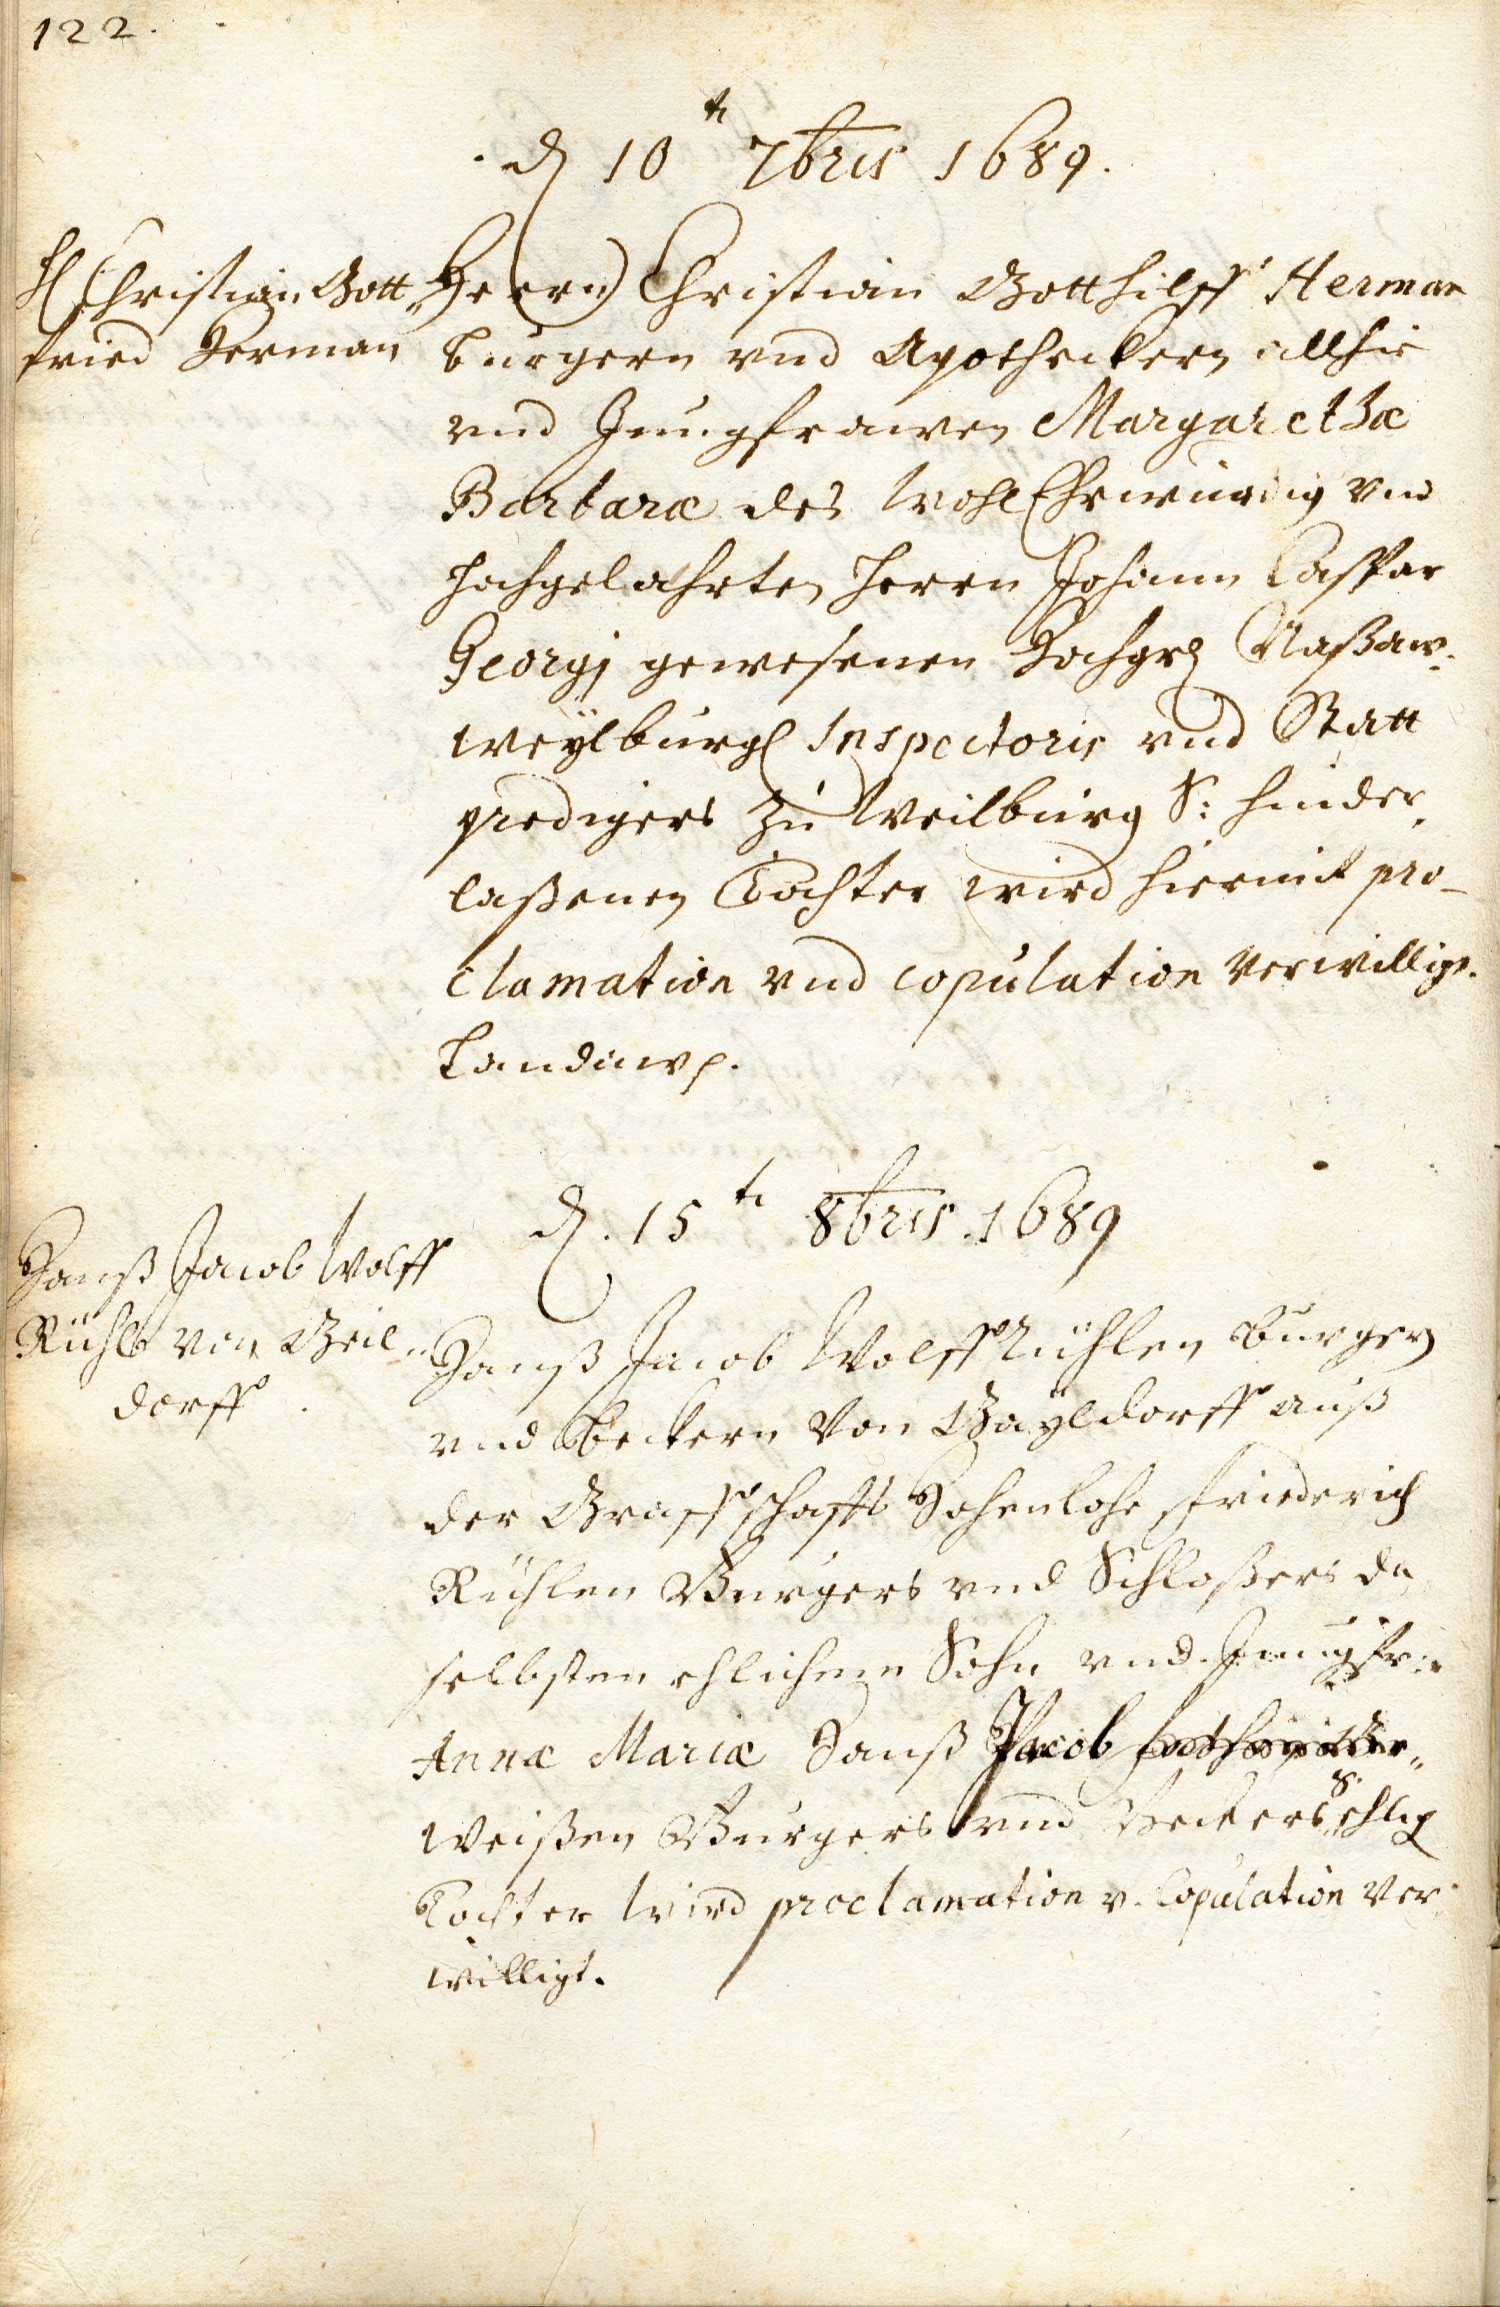 122.
d 10 tn 7bris 1689.
H Christian Gott„
fried Herman
Herrn Christian Gotthilff Herman
burgern vnd Apotheckern allhie
vnd Jungfrawen Margarethæ
Barbaræ des WohlEhrwürdig vnd
hochgelahrten Herrn Johann Caspar
Georgj gewesenen Hochgrl Naßaw-
weÿlburgl Inspectoris vnd Statt
predigers zu Weilburg S: hinder„
laßenen Tochter wird hiermit pro-
clamation vnd copulation verwilligt.
Landaw.
d. 15 tn 8bris 1689
Hanß Jacob Wolff
Rühl von Geil„
dorff.
Hanß Jacob Wolff Rühlen burgern
vnd Beckern Von Gaÿldorff auß
der Graffschafft Hohenlohe Friederich
Rühlen Burgers vnd Schloßers da
selbsten ehlichem Sohn vnd Jungfr:
Annæ Mariæ Hanß Jacob
Weißen Burgers vnd Beckers S. ehlig
Tochter Wird proclamation v. Copulation Ver„
willigt.